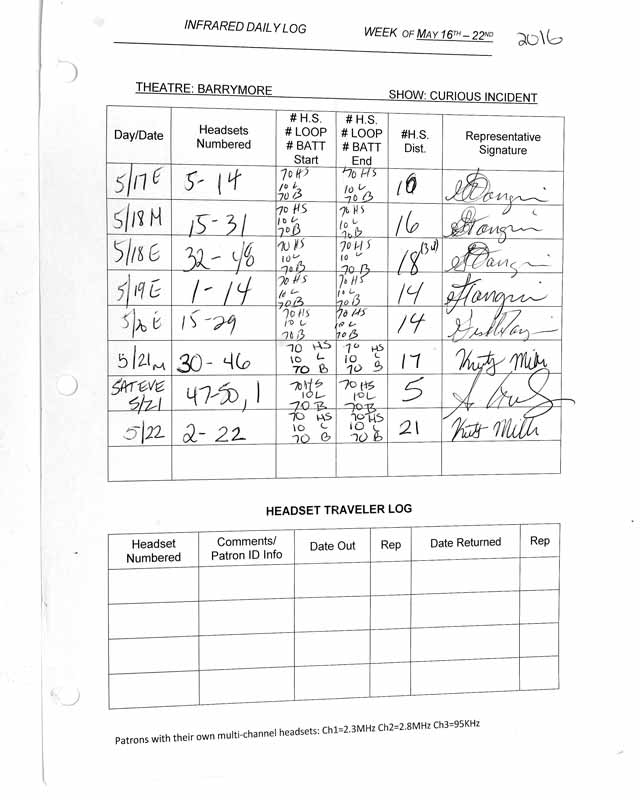 INFRARED DAILY LOG WEEK OF MAY 16TH – 22ND 2016
THEATRE: BARRYMORE SHOW: CURIOUS INCIDENT
Day/Date Headsets Numbered # H.S. # LOOP # BATT Start # H.S. # LOOP # BATT End #H.S. Dist. Representative Signature
5/17 E 5-14 70 HS 10 L 70 B 70 HS 10 L 70 B
5/18 M 15-31 70 HS 10 L 70 B 70 HS 10 L 70 B 16
5/18 E 32-48 70 HS 10 L 70 B 70 HS 10 L 70 B 18
5/19 E 1-14 70 HS 10 L 70 B 70 HS 10 L 70 B 14
5/20 E 15-29 70 HS 10 L 70 B 70 HS 10 L 70 B 14
5/21 M 30-46 70 HS 10 L 70 B 70 HS 10 L 70 B 17
SAT EVE 5/21 47-50, 1 70 HS 10 L 70 B 70 HS 10 L 70 B 5
5/22 2-22 70 HS 10 L 70 B 70 HS 10 L 70 B 21
HEADSET TRAVELER LOG
Headset Numbered Comments/ Patron ID Info Date Out Rep Date Returned Rep
Patrons with their own multi-channel headsets: Ch1=2.3MHz Ch2=2.8MHz Ch3=95KHz